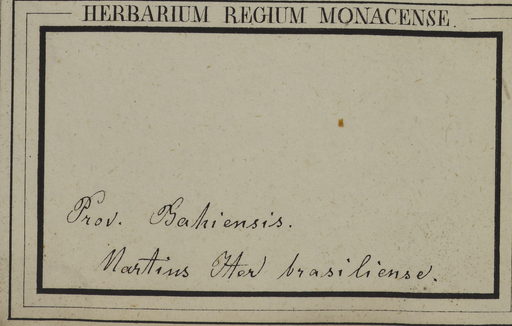 HERBARIUM REGIUM MONACENSE.
Prov. Bahiensis.
Martius Iter brasiliense.